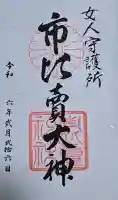 女人守護所
市比賣大神
令和
六年弐月弐拾六日